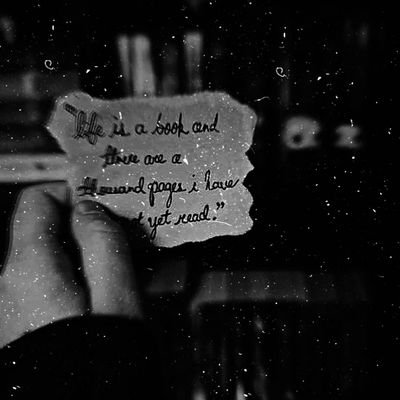 "life is a book and
there are a
thousand pages i have
yet read."